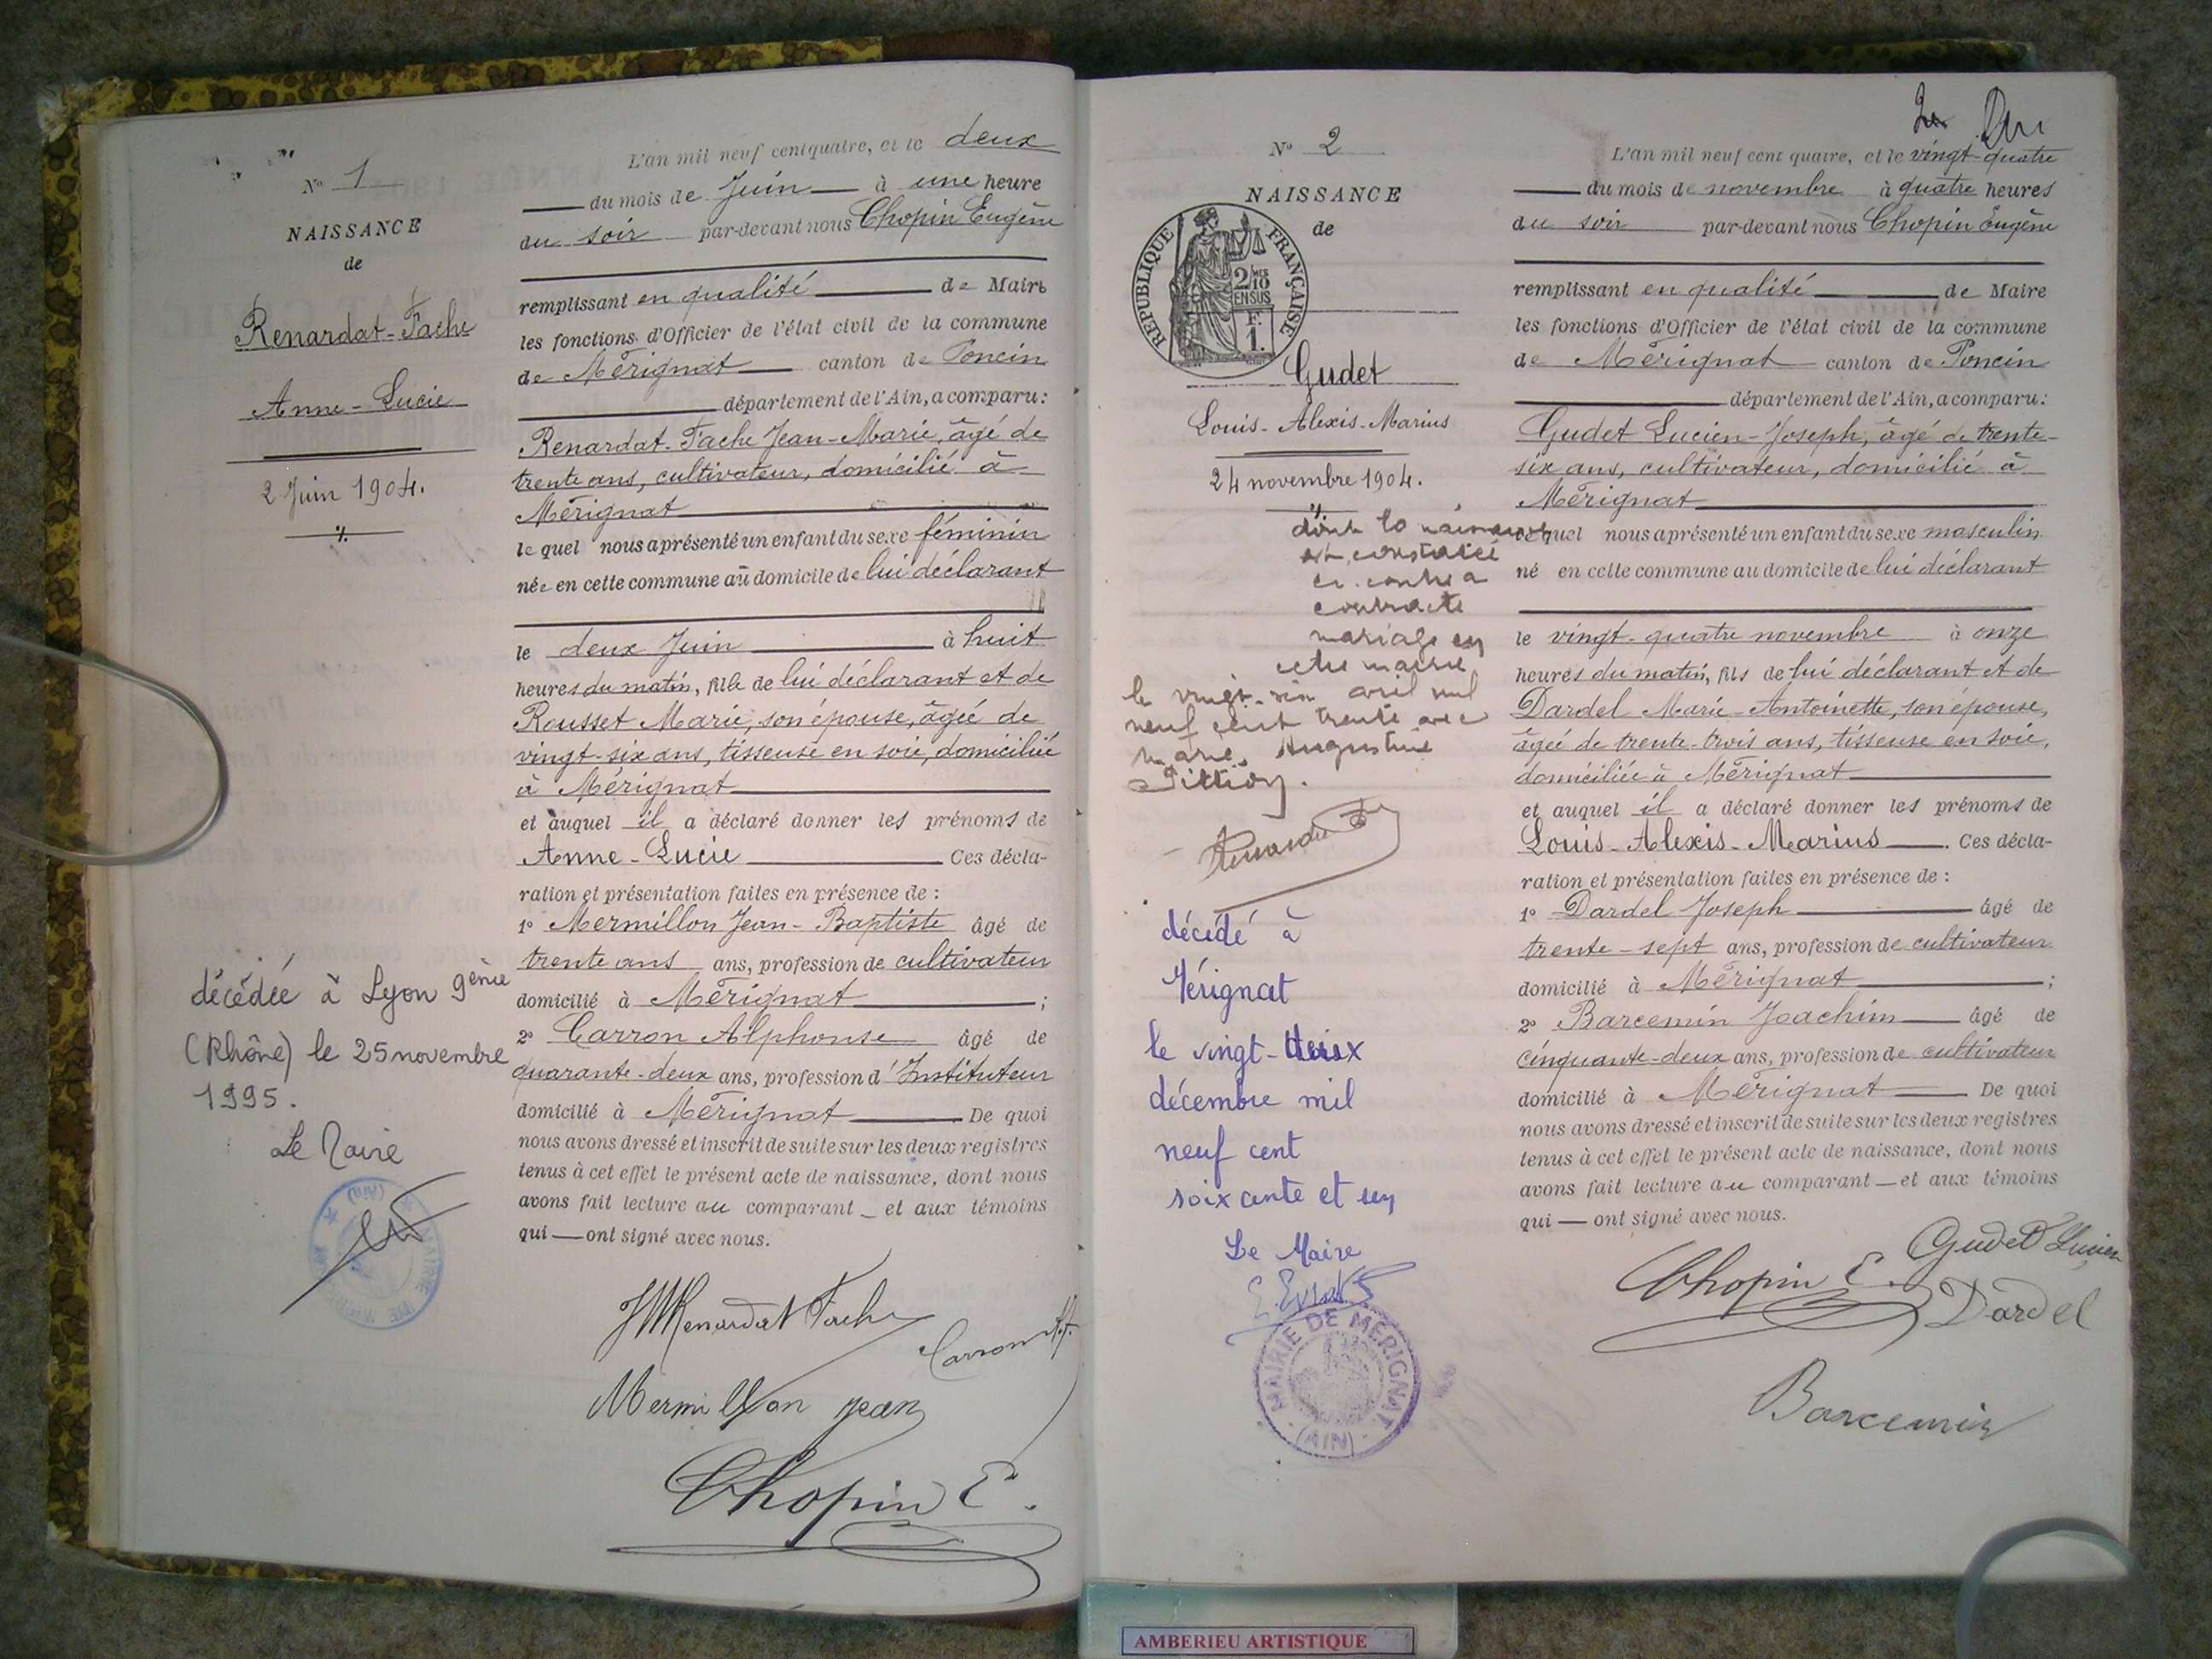 N° 1
NAISSANCE
de
Renardat-Fache
Anne-Lucie
2 Juin 1904.
décédée à Lyon 9ème
(Rhône) le 25 novembre
1995.
Le Maire
L'an mil neuf cent quatre, et le deux
du mois de Juin à une heure
du soir par-devant nous Chopin Eugène
remplissant en qualité de Maire
les fonctions d'Officier de l'état civil de la commune
de Mérignat canton de Poncin
département de l'Ain, a comparu :
Renardat-Fache Jean-Marie, âgé de
trente ans, cultivateur, domicilié à
Mérignat
le quel nous a présenté un enfant du sexe féminin
née en cette commune au domicile de lui déclarant
le deux Juin à huit
heures du matin, fille de lui déclarant et de
Rousset Marie, son épouse, âgée de
vingt-six ans, tisseuse en soie, domiciliée
à Mérignat
et auquel il a déclaré donner les prénoms de
Anne-Lucie Ces décla-
ration et présentation faites en présence de :
1° Mermillon Jean-Baptiste âgé de
trente ans ans, profession de cultivateur
domicilié à Mérignat ;
2° Carron Alphonse âgé de
quarante-deux ans, profession d'Instituteur
domicilié à Mérignat De quoi
nous avons dressé et inscrit de suite sur les deux registres
tenus à cet effet le présent acte de naissance, dont nous
avons fait lecture au comparant et aux témoins
qui ont signé avec nous.
JM Renardat Fache
Carron
Mermillon Jean
Chopin E.
N° 2
NAISSANCE
de
REPUBLIQUE FRANÇAISE
2/10 EN SUS
F.
1.
Gudet
Louis-Alexis-Marius
24 novembre 1904.
dont la naissance
est constatée
ci-contre a
contracté
mariage en
cette mairie
le vingt-six avril mil
neuf cent trente avec
Marie Augustine
décédé à
Mérignat
le vingt-deux
décembre mil
neuf cent
soixante et un
Le Maire
MAIRIE DE MÉRIGNAT
(AIN)
L'an mil neuf cent quatre, et le vingt-quatre
du mois de novembre à quatre heures
du soir par-devant nous Chopin Eugène
remplissant en qualité de Maire
les fonctions d'Officier de l'état civil de la commune
de Mérignat canton de Poncin
département de l'Ain, a comparu :
Gudet Lucien-Joseph, âgé de trente-
six ans, cultivateur, domicilié à
Mérignat
lequel nous a présenté un enfant du sexe masculin
né en cette commune au domicile de lui déclarant
le vingt-quatre novembre à onze
heures du matin, fils de lui déclarant et de
Dardel Marie-Antoinette, son épouse,
âgée de trente-trois ans, tisseuse en soie,
domiciliée à Mérignat
et auquel il a déclaré donner les prénoms de
Louis-Alexis-Marius. Ces décla-
ration et présentation faites en présence de :
1° Dardel Joseph âgé de
trente-sept ans, profession de cultivateur
domicilié à Mérignat ;
2° Barcemin Joachim âgé de
cinquante-deux ans, profession de cultivateur
domicilié à Mérignat De quoi
nous avons dressé et inscrit de suite sur les deux registres
tenus à cet effet le présent acte de naissance, dont nous
avons fait lecture au comparant et aux témoins
qui ont signé avec nous.
Gudet Lucien
Chopin E.
Dardel
Barcemin
AMBERIEU ARTISTIQUE